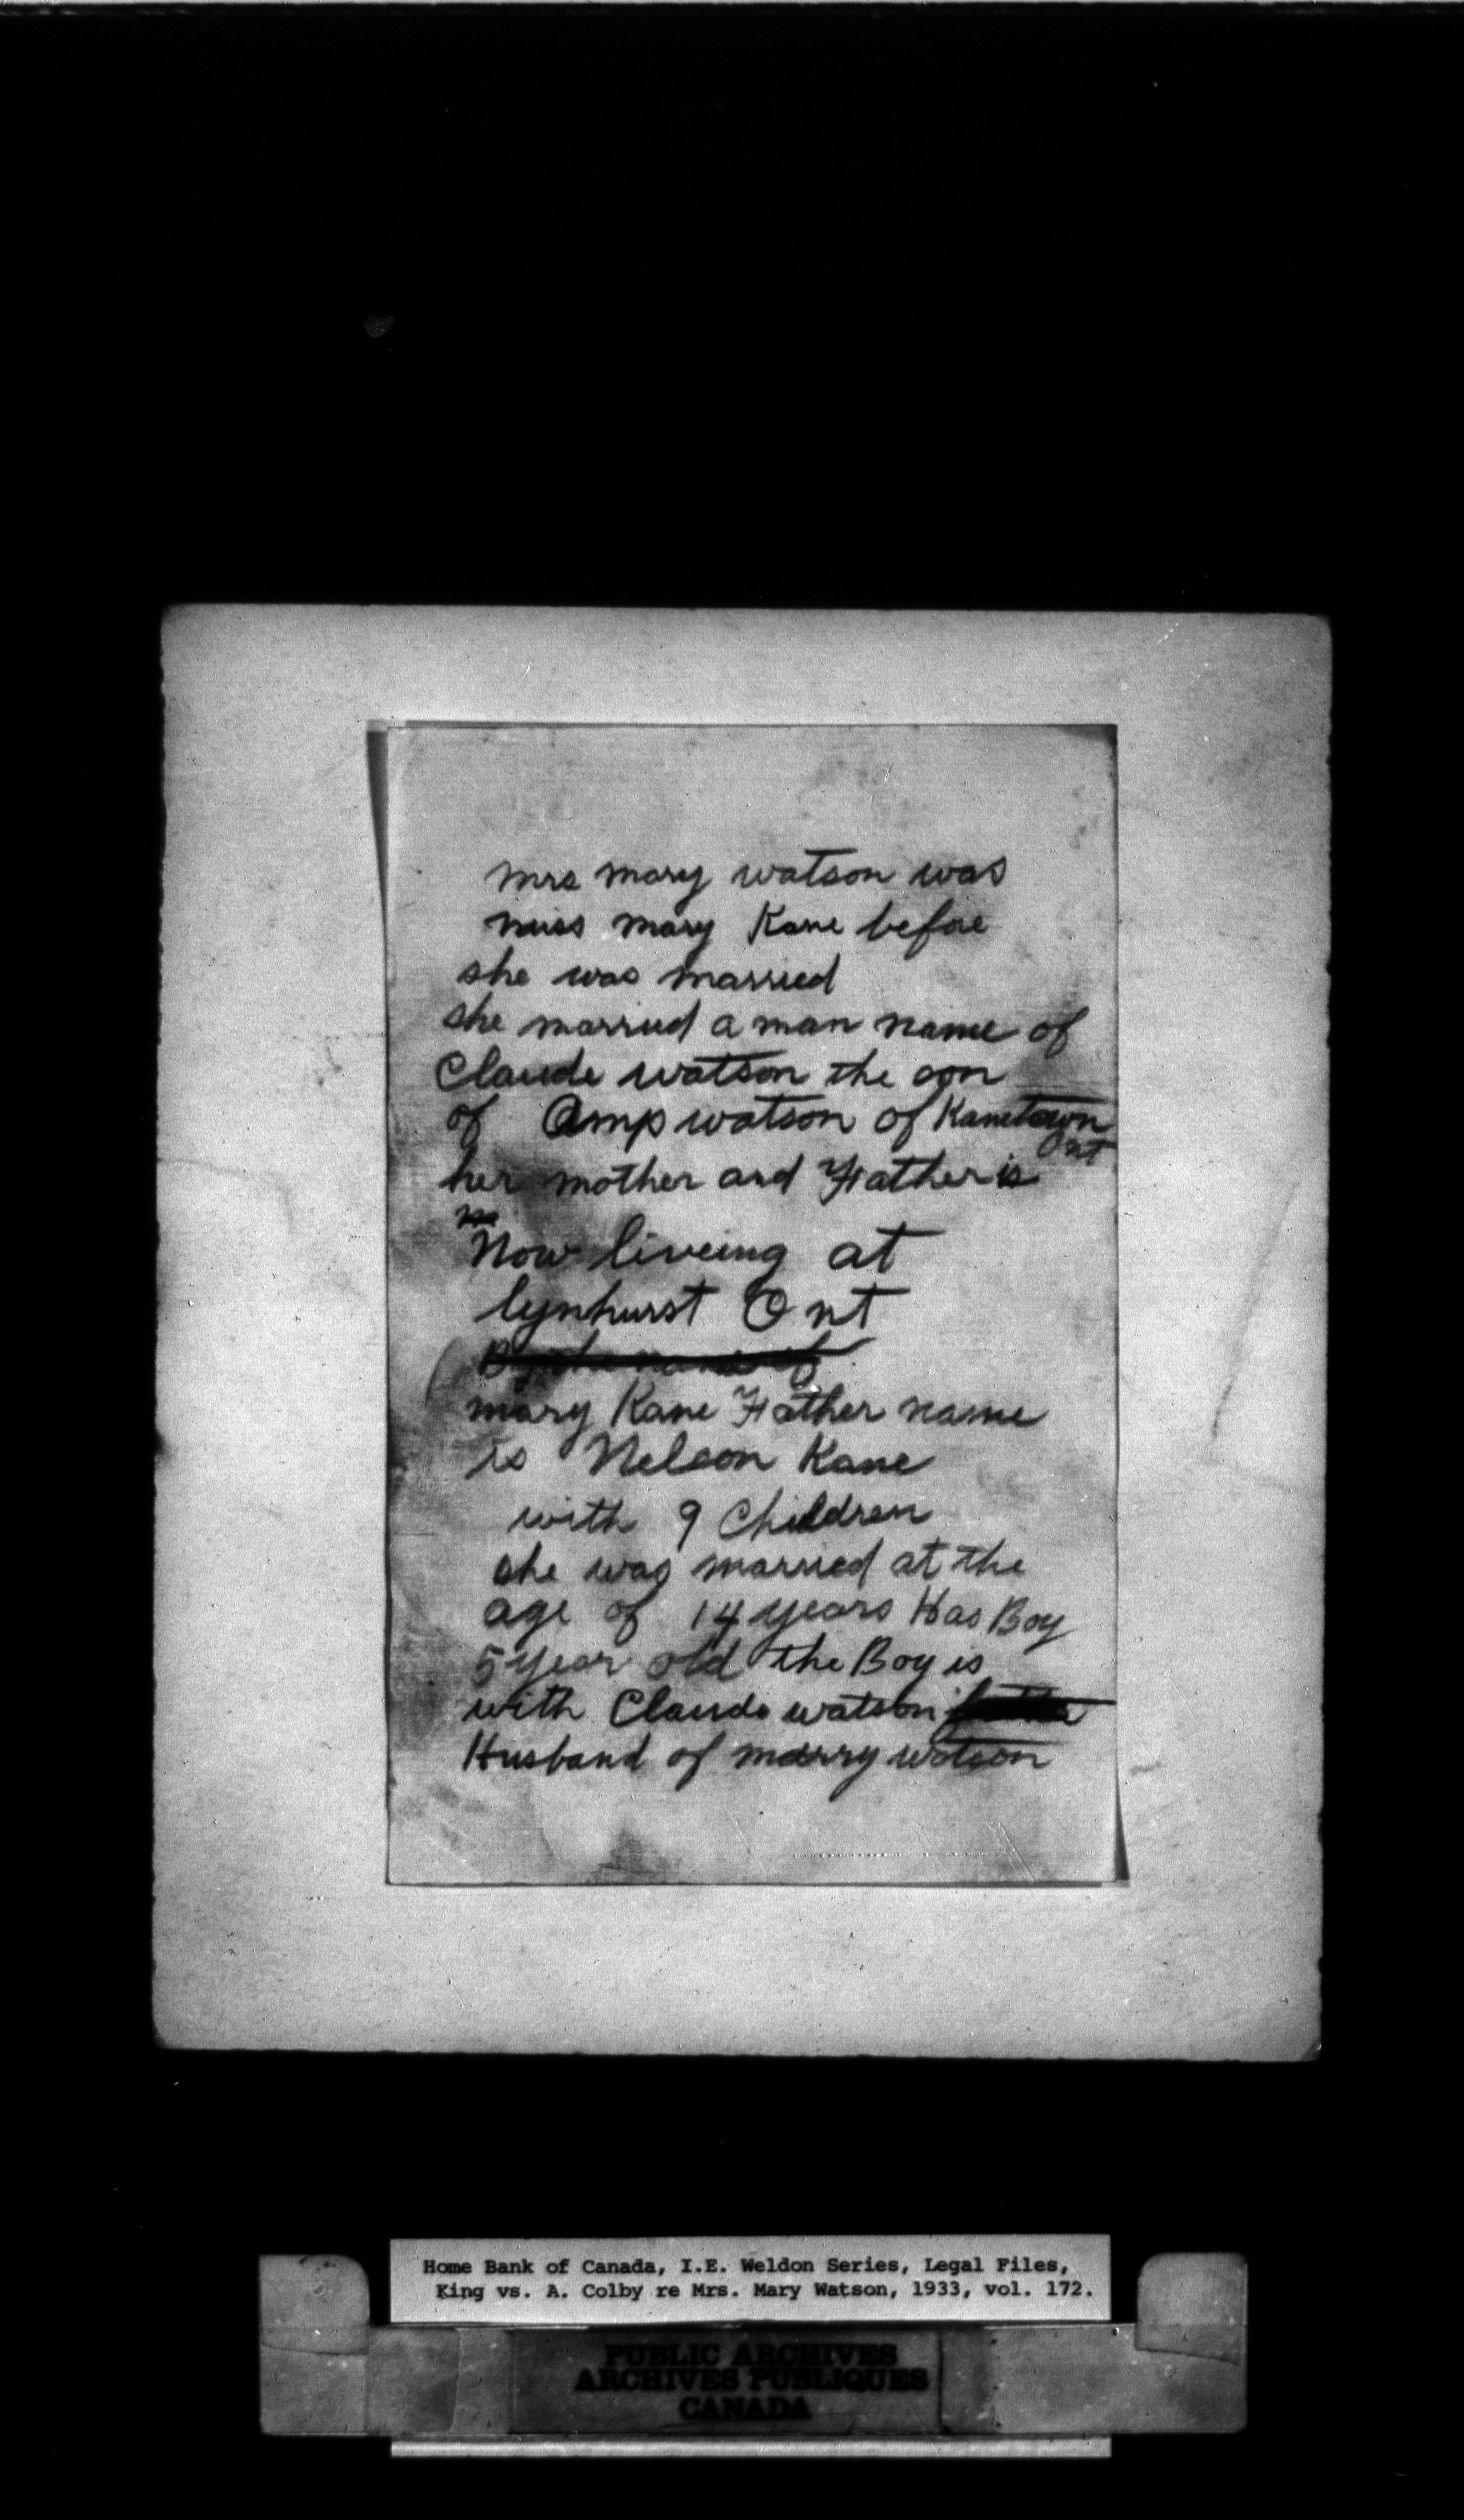 mrs mary watson was
miss mary Kane before
she was married
she married a man name of
Claude watson the son
of Amp watson of Kanetown
ont
her mother and Father is
Now liveing at
lynhurst Ont
By the name of
mary Kane Father name
is Nelson Kane
with 9 Children
she was married at the
age of 14 years Has Boy
5 year old the Boy is
with Claude watson
Husband of marry watson
Home Bank of Canada, I.E. Weldon Series, Legal Files,
King vs. A. Colby re Mrs. Mary Watson, 1933, vol. 172.
PUBLIC ARCHIVES
ARCHIVES PUBLIQUES
CANADA